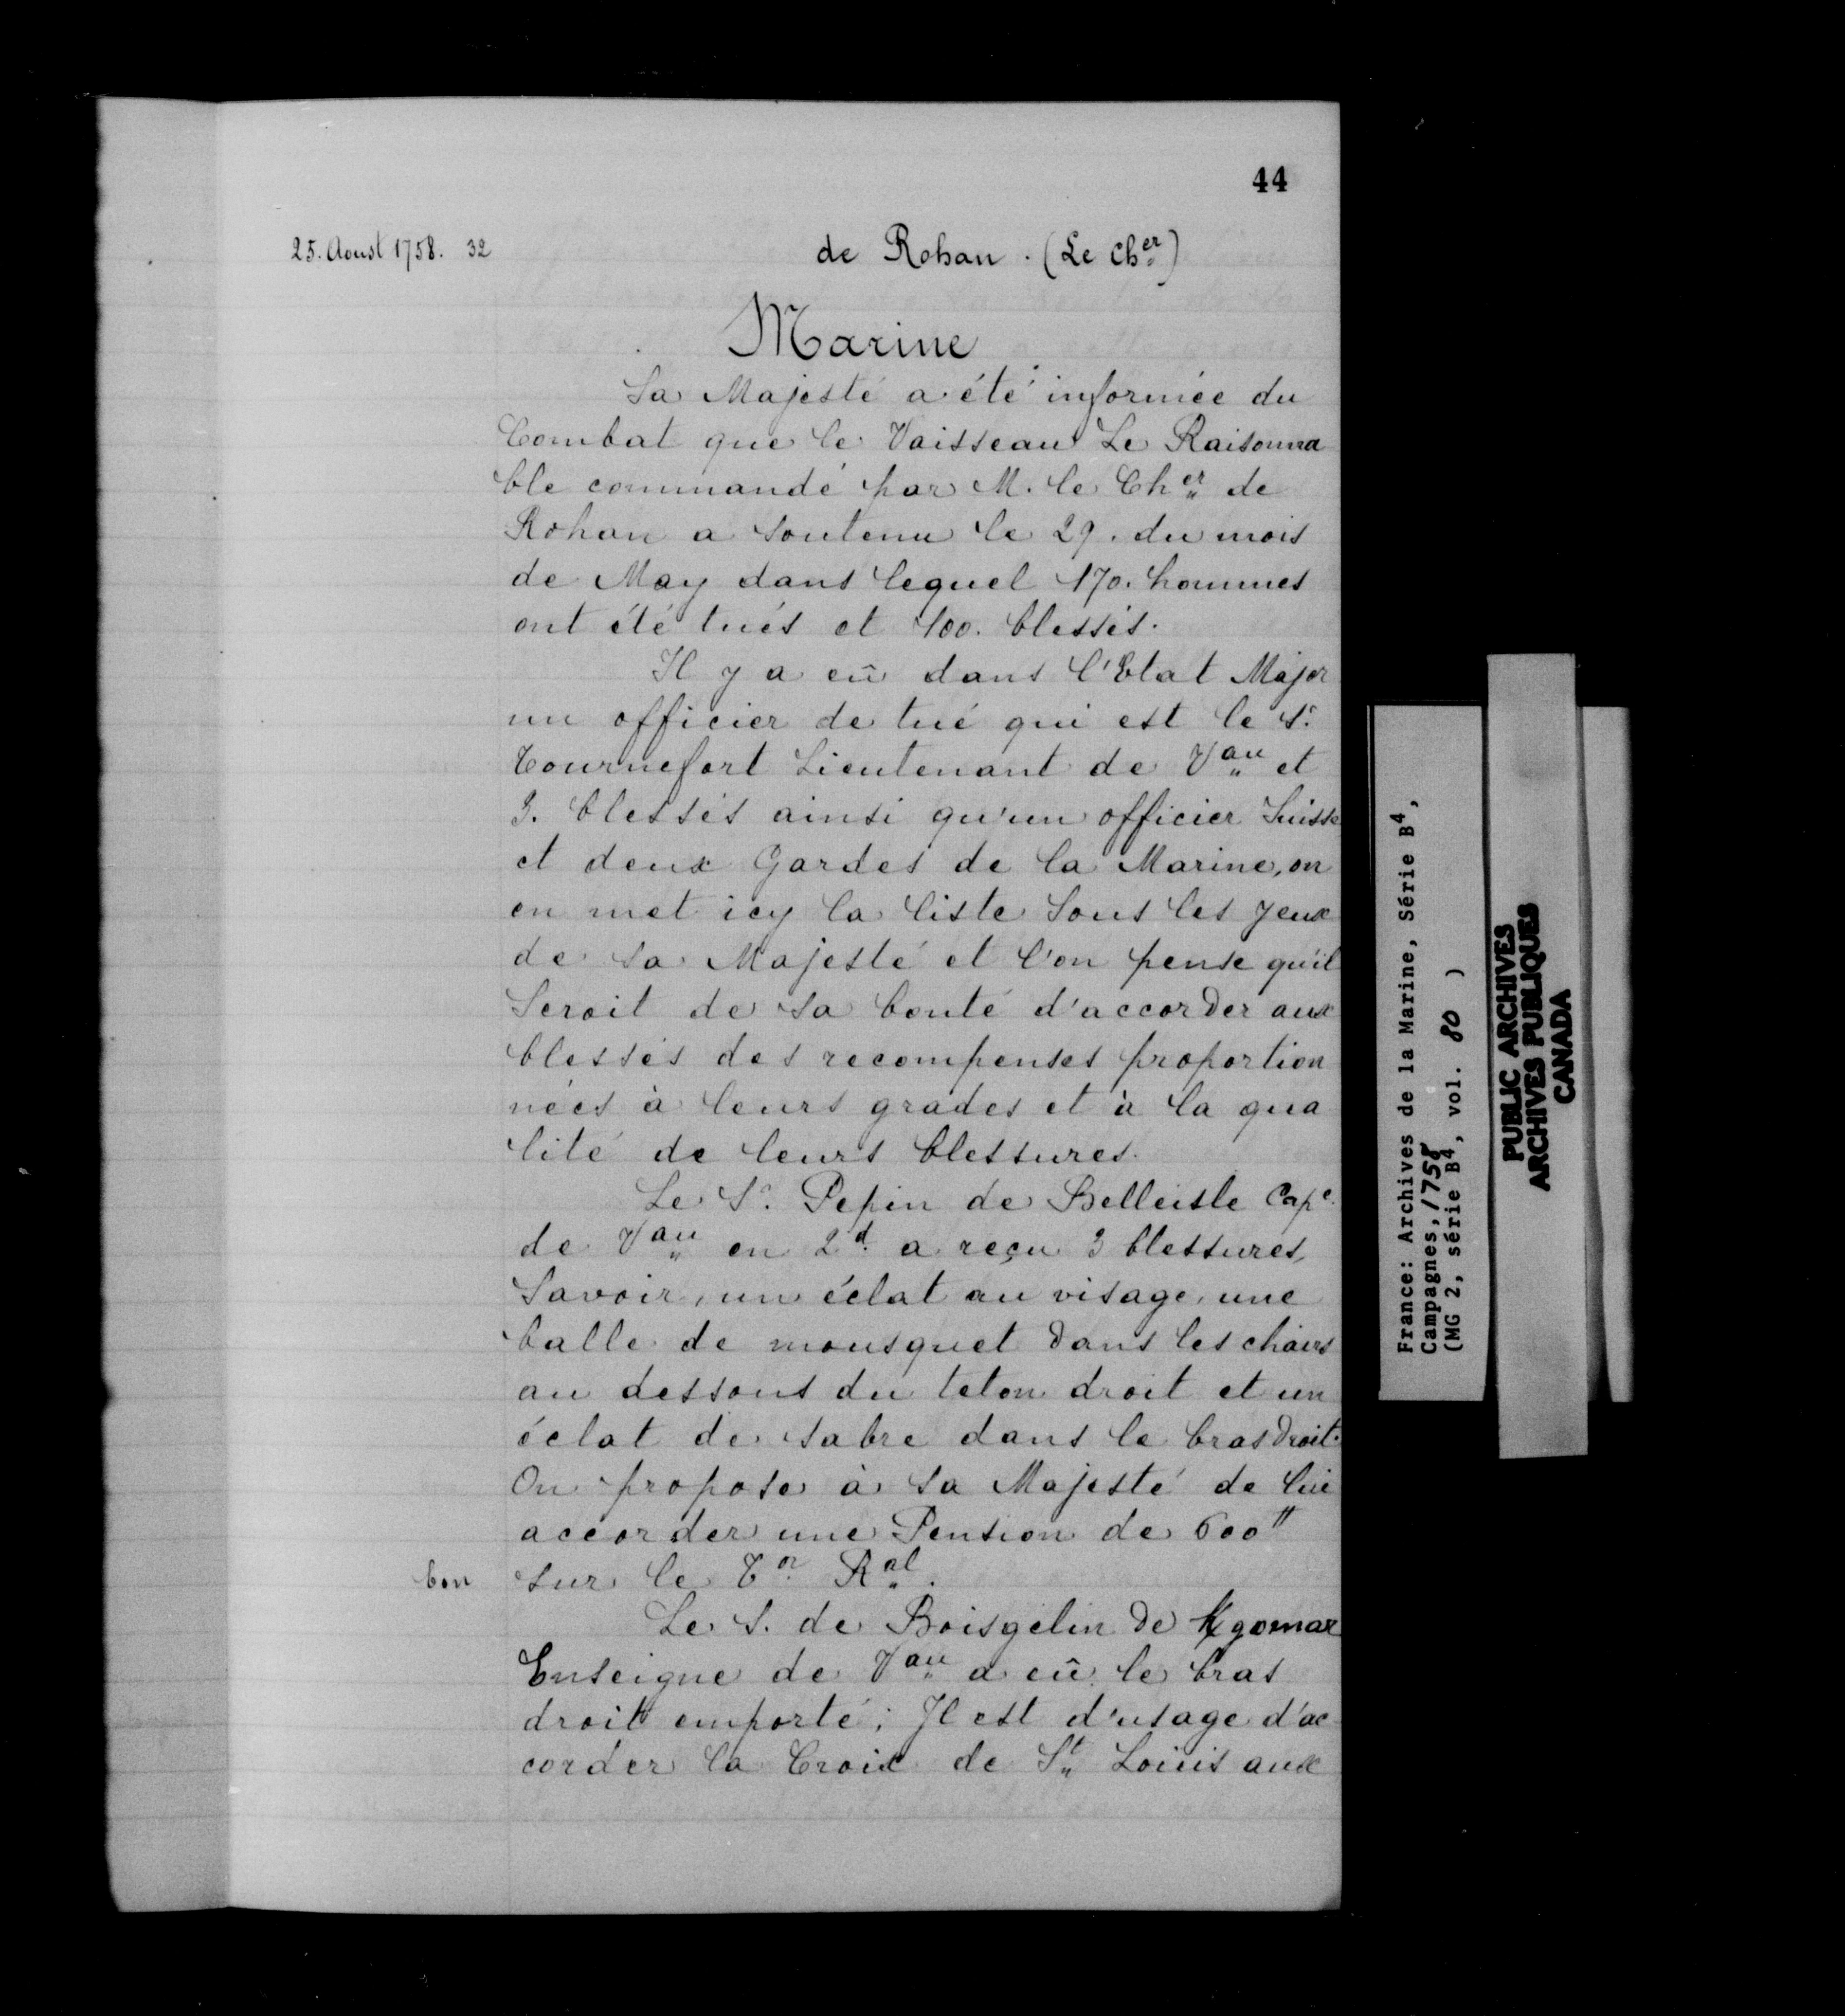 44
25. Aoust 1758. 32 de Rohan. (Le Cher)
Marine
Sa Majesté a été informée du
Combat que le Vaisseau Le Raisonna
ble commandé par M. le Cher de
Rohan a soutenu le 29. du mois
de May dans lequel 170. hommes
ont été tués et 100. blessés.
Il y a eû dans l'Etat Major
un officier de tué qui est le Sr.
Tournefort Lieutenant de Vau et
3. blessés ainsi qu'un officier Suisse
et deux Gardes de la Marine, on
en met icy la liste sous les yeux
de sa Majesté et l'on pense qu'il
seroit de sa bonté d'accorder aux
blessés des recompenses proportion
nées à leurs grades et à la qua
lité de leurs blessures.
Le Sr. Pepin de Belleisle Cape.
de Vau en 2d. a reçu 3 blessures,
Savoir, un éclat au visage, une
balle de mousquet dans les chairs
au dessous du teton droit et un
éclat de sabre dans le bras droit.
On propose à sa Majesté de lui
accorder une Pension de 600tt
bon sur le Tor. Ral.
Le S. de Boisgelin de Kgomar
Enseigne de Vau a eû le bras
droit emporté; Il est d'usage d'ac
corder la Croix de St Loüis aux
France: Archives de la Marine, Série B4,
Campagnes, 1758
(MG 2, série B4, vol. 80 )
PUBLIC ARCHIVES
ARCHIVES PUBLIQUES
CANADA